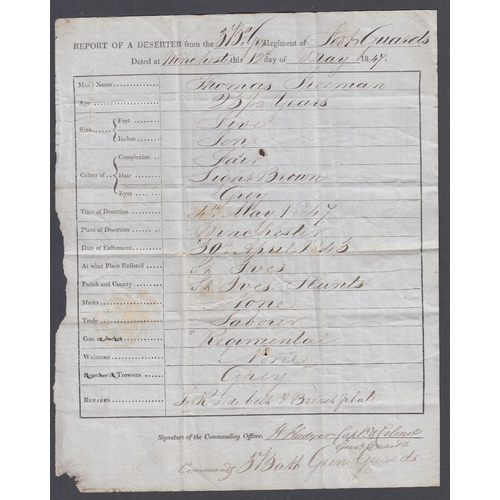 REPORT OF A DESERTER from the 3rd Bn Gr Regiment of Foot Guards
Dated at Winchester this day of May 1847.
Man's Name Thomas Freeman
Age 23 Years
Size Feet Five
Inches
Complexion Fair
Colour of Hair Light Brown
Eyes Grey
Time of Desertion 4th May 1847
Place of Desertion Winchester
Date of Enlistment 30th April 1843
At what Place Enlisted St Ives
Parish and County St Ives Hunts
Marks None
Trade Labourer
Coat or Jacket Regimental
Waistcoat None
Breeches or Trowsers Grey
REMARKS side belt & Breast plate
Signature of the Commanding Officer. Captn & Colonel
Gren Guards
Commanding 3rd Batt Gren Guards